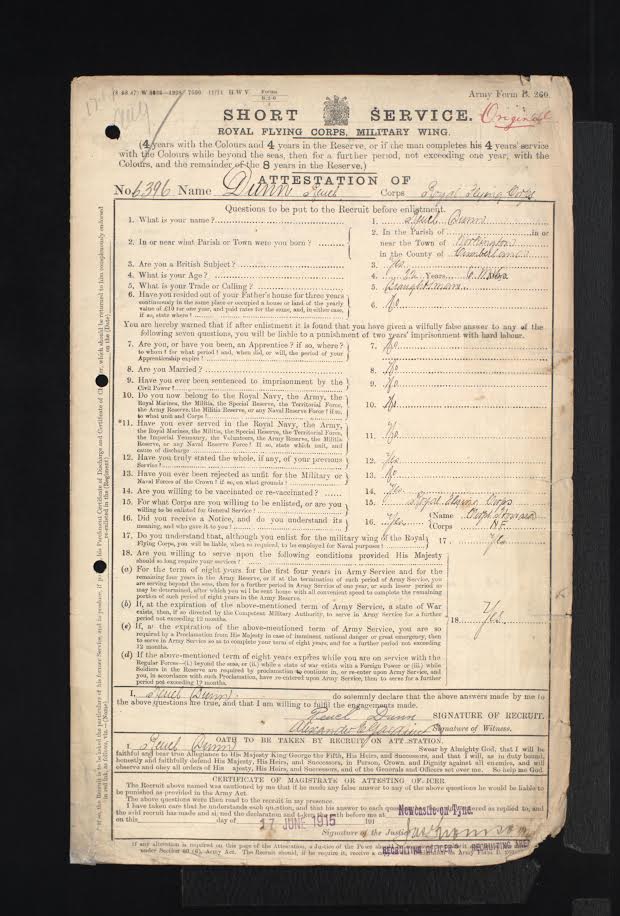 Forms
Army Form B. 260.
SHORT SERVICE. Original
ROYAL FLYING CORPS, MILITARY WING.
(4 years with the Colours and 4 years in the Reserve, or if the man completes his 4 years' service
with the Colours while beyond the seas, then for a further period, not exceeding one year, with the
Colours, and the remainder of the 8 years in the Reserve.)
ATTESTATION OF
No. 6396 Name Dunn Reuel Corps Royal Flying Corps
Questions to be put to the Recruit before enlistment.
1. What is your name? 1. Reuel Dunn
2. In or near what Parish or Town were you born? 2. In the Parish of in or
near the Town of Workington
in the County of Cumberland
3. Are you a British Subject? 3. Yes
4. What is your Age? 4. 22 Years
5. What is your Trade or Calling? 5. Draughtsman
6. Have you resided out of your Father's house for three years
continuously in the same place or occupied a house or land of the yearly
value of £10 for one year, and paid rates for the same, and, in either case,
if so, state where? 6. No
You are hereby warned that if after enlistment it is found that you have given a wilfully false answer to any of the
following seven questions, you will be liable to a punishment of two years' imprisonment with hard labour.
7. Are you, or have you been, an Apprentice? if so, where?
to whom? for what period? and, when did, or will, the period of your
Apprenticeship expire? 7. No
8. Are you Married? 8. No
9. Have you ever been sentenced to imprisonment by the
Civil Power? 9. No
10. Do you now belong to the Royal Navy, the Army, the
Royal Marines, the Militia, the Special Reserve, the Territorial Force,
the Army Reserve, the Militia Reserve, or any Naval Reserve Force? if so,
to what unit and Corps? 10. No
*11. Have you ever served in the Royal Navy, the Army,
the Royal Marines, the Militia, the Special Reserve, the Territorial Force,
the Imperial Yeomanry, the Volunteers, the Army Reserve, the Militia
Reserve, or any Naval Reserve Force? If so, state which unit, and
cause of discharge 11. No
12. Have you truly stated the whole, if any, of your previous
Service? 12. Yes
13. Have you ever been rejected as unfit for the Military or
Naval Forces of the Crown? if so, on what grounds? 13. No
14. Are you willing to be vaccinated or re-vaccinated? 14. Yes
15. For what Corps are you willing to be enlisted, or are you
willing to be enlisted for General Service? 15. Royal Flying Corps
16. Did you receive a Notice, and do you understand its
meaning, and who gave it to you? 16. Yes (Name
(Corps
17. Do you understand that, although you enlist for the military wing of the Royal
Flying Corps, you will be liable, when so required, to be employed for Naval purposes? 17. Yes
18. Are you willing to serve upon the following conditions provided His Majesty
should so long require your services?
(a) For the term of eight years for the first four years in Army Service and for the
remaining four years in the Army Reserve, or if at the termination of such period of Army Service, you
are serving beyond the seas, then for a further period in Army Service of one year, or such lesser period as
may be determined, after which you will be sent home with all convenient speed to complete the remaining
portion of such period of eight years in the Army Reserve.
(b) If, at the expiration of the above-mentioned term of Army Service, a state of War
exists, then, if so directed by the Competent Military Authority, to serve in Army Service for a further
period not exceeding 12 months.
(c) If, at the expiration of the above-mentioned term of Army Service, you are so
required by a Proclamation from His Majesty in case of imminent national danger or great emergency, then
to serve in Army Service so as to complete your term of eight years, and for a further period not exceeding
12 months.
(d) If the above-mentioned term of eight years expires while you are on service with the
Regular Forces—(i.) beyond the seas, or (ii.) while a state of war exists with a Foreign Power or (iii.) while
Soldiers in the Reserve are required by proclamation to continue in, or re-enter upon Army Service, and
you, in accordance with such Proclamation, have re-entered upon Army Service, then to serve for a further
period not exceeding 12 months.
18. Yes
I, Reuel Dunn do solemnly declare that the above answers made by me to
the above questions are true, and that I am willing to fulfil the engagements made.
Reuel Dunn SIGNATURE OF RECRUIT.
Signature of Witness.
OATH TO BE TAKEN BY RECRUIT ON ATTESTATION.
I, Reuel Dunn Swear by Almighty God, that I will be
faithful and bear true Allegiance to His Majesty King George the Fifth, His Heirs, and Successors, and that I will, as in duty bound,
honestly and faithfully defend His Majesty, His Heirs, and Successors, in Person, Crown, and Dignity against all enemies, and will
observe and obey all orders of His Majesty, His Heirs, and Successors, and of the Generals and Officers set over me. So help me God.
CERTIFICATE OF MAGISTRATE OR ATTESTING OFFICER.
The Recruit above named was cautioned by me that if he made any false answer to any of the above questions he would be liable to
be punished as provided in the Army Act.
The above questions were then read to the recruit in my presence.
I have taken care that he understands each question, and that his answer to each question replied to, and
Newcastle-on-Tyne.
on this day of 17 JUNE 1915
Signature of the Justice
RECRUITING OFFICER. RECRUITING AREA